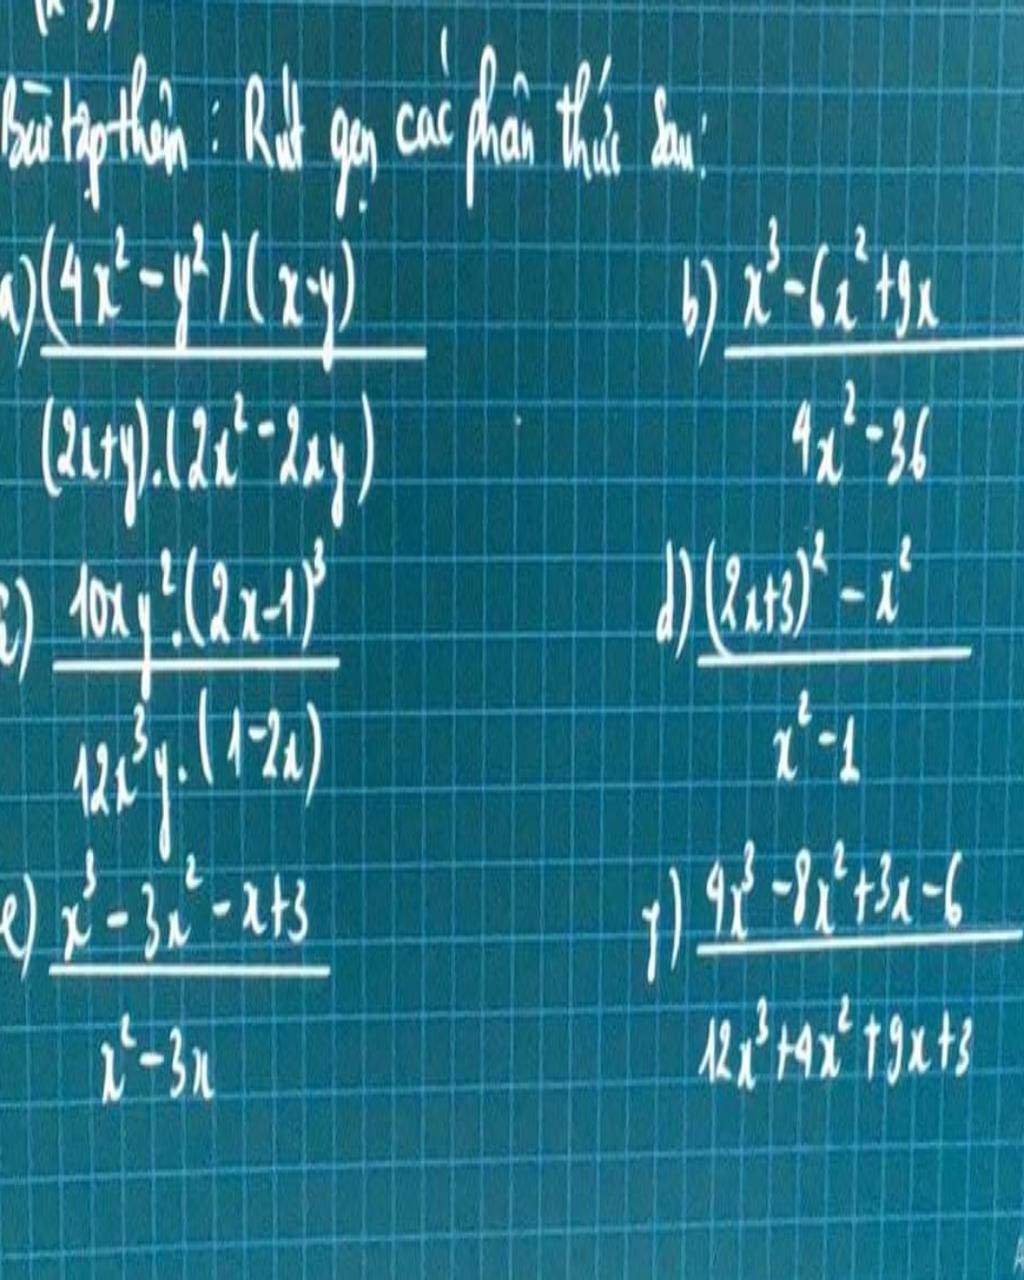 Bài tập thêm : Rút gọn các phân thức sau:
a) (4x² - y²)(x-y)
(2x+y).(2x² - 2xy)
b) x³ - 6x² + 9x
4x² - 36
c) 10xy².(2x-1)³
12x³y.(1-2x)
d) (2x+3)² - x²
x² - 1
e) x³ - 3x² - x + 3
x² - 3x
f) 4x³ - 8x² + 3x - 6
12x³ + 4x² + 9x + 3